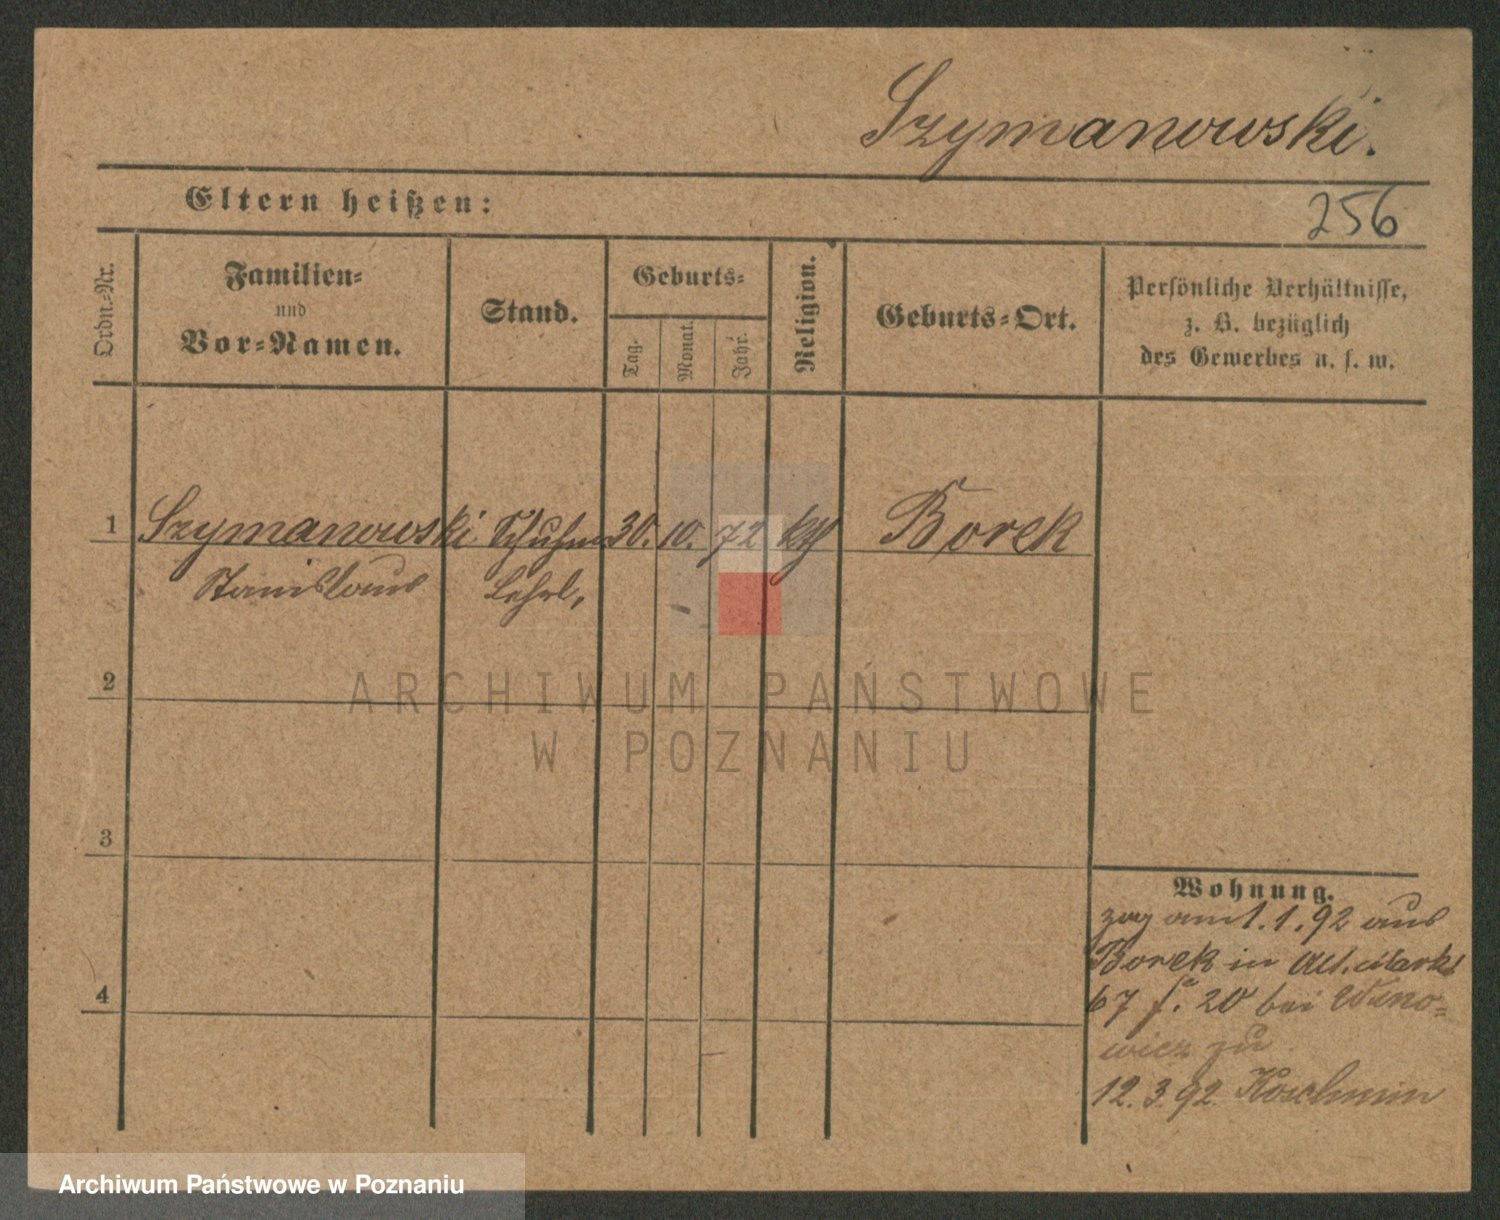 Szymanowski.
Eltern heißen:
256
Ordn.-Nr.
Familien-
und
Vor-Namen.
Stand.
Geburts-
Tag.
Monat.
Jahr.
Religion.
Geburts-Ort.
Persönliche Verhältnisse,
z. B. bezüglich
des Gewerbes u. s. w.
1
Szymanowski Schuhm 30. 10. 72 kth Borek
Stanislaus Lehrl,
2
ARCHIWUM PAŃSTWOWE
W POZNANIU
3
Wohnung.
zog am 1.1.92 aus
Borek in Alt. Markt
4
67 20 bei
wicz zu
12.3.92 Koschmin
Archiwum Państwowe w Poznaniu